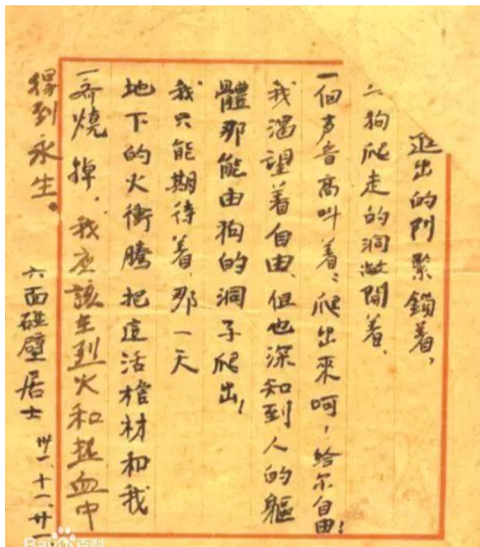 進出的门緊鎖着,
狗爬走的洞敞開着、
一個声音高叫着:爬出來呵!给尔自由!
我渴望着自由,但也深知到人的軀
體那能由狗的洞子爬出!
我只能期待着,那一天
地下的火衝騰把這活棺材和我
一齊燒掉,我应該在烈火和热血中
得到永生。
六面碰壁居士 卅一.十一.廿一
Bai百科